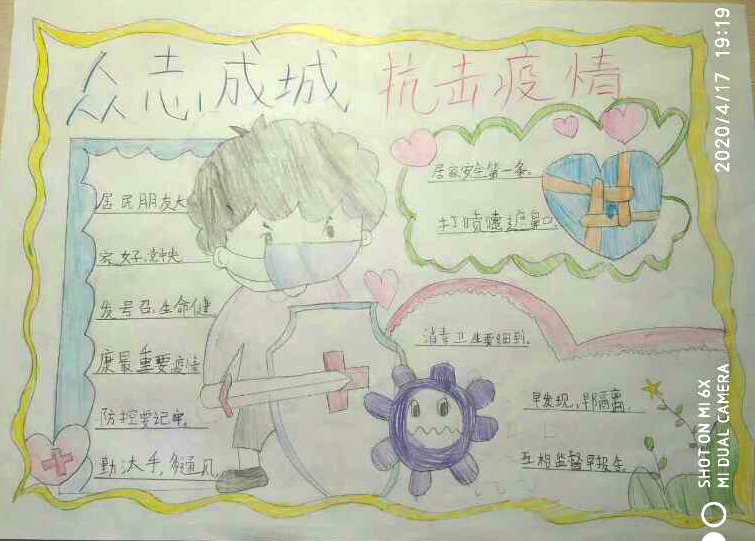 众志成城 抗击疫情
居民朋友大
家好,党中央
发号召,生命健
康最重要疫情
防控要记牢。
勤洗手,多通风,
居家安全第一条。
打喷嚏遮鼻口
消毒卫生要细到。
早发现,早隔离,
互相监督早报告。
SHOT ON MI 6X
MI DUAL CAMERA
2020/4/17 19:19